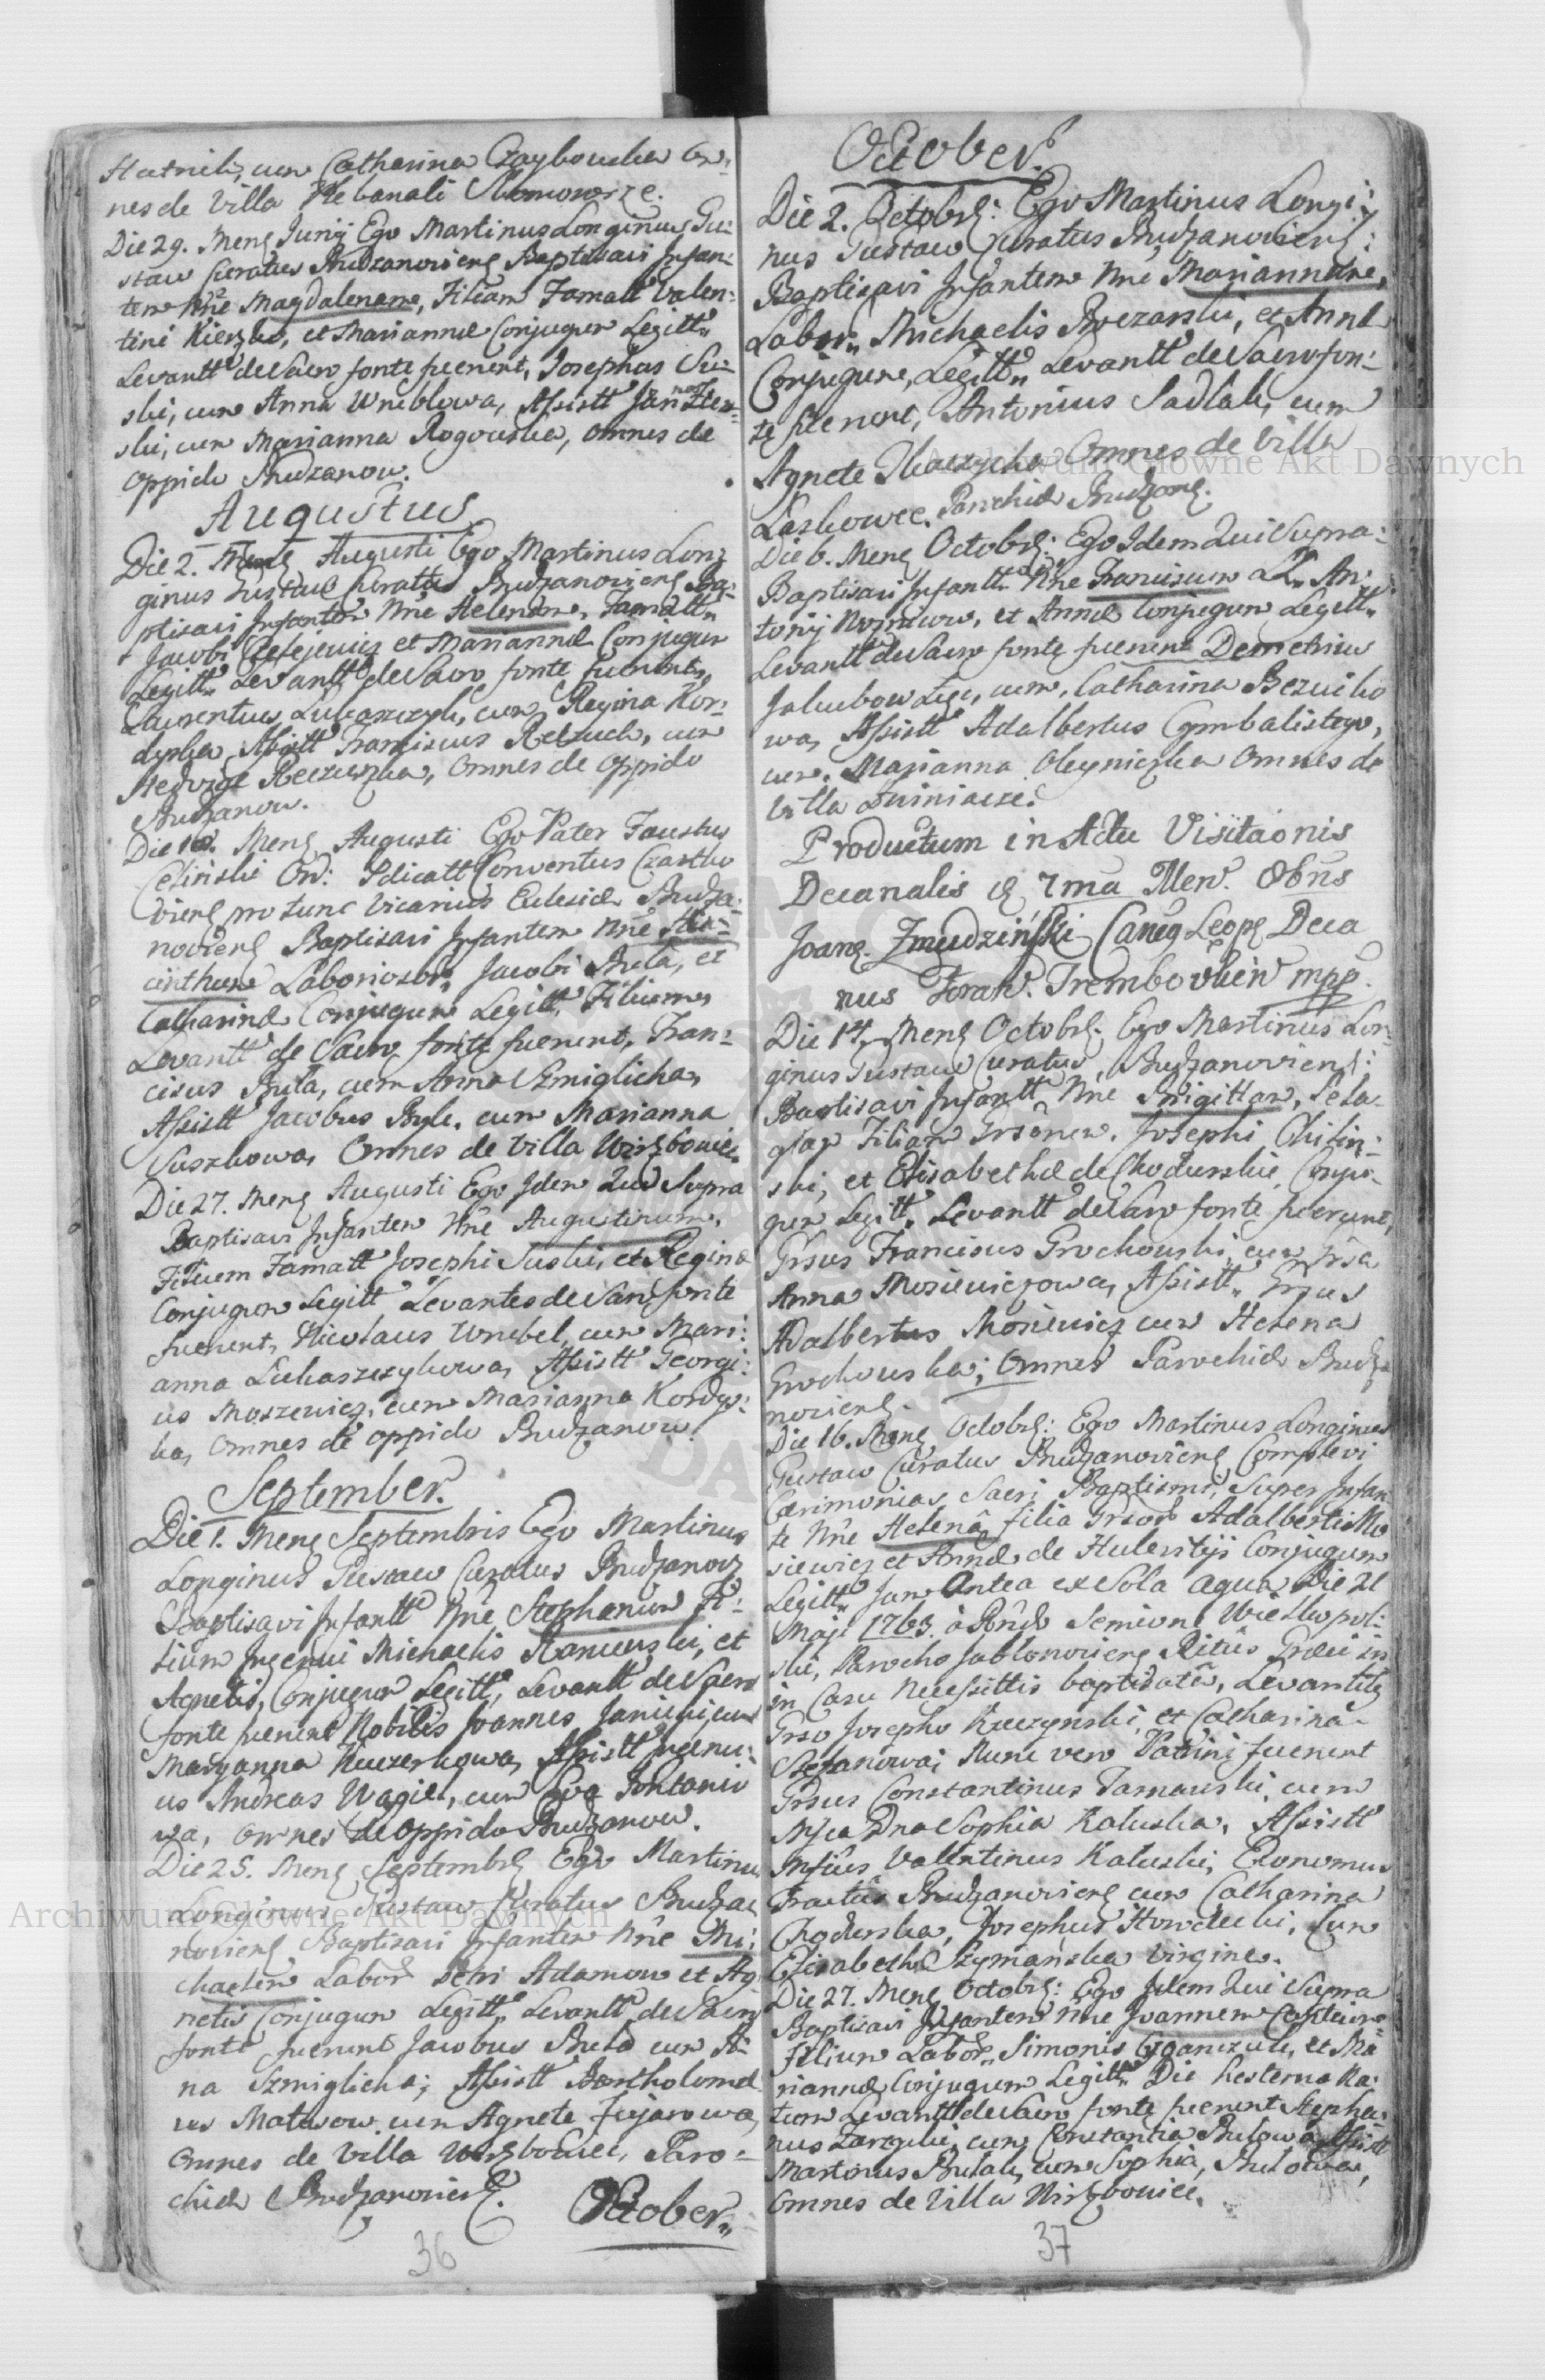 cum Catharina Czaykowska Om:
nes de Villa Plebanali
Die 29. Mens Junij Ego Martinus Longinus Gu:
staw Curatus Budzanoviens Baptisavi Infan:
tem Nñe Magdalenam, Filiam Famatt Valen:
tini et Mariannæ Conjugum Legitt"
Levantt de Sacro fonte fuerunt, Josephus Su:
ski, cum Anna Wrublowa, Assistt Jan
ski, cum Marianna Rogowska, omnes de
oppido Budzanow.
Augustus
Die 2. Mens Augusti Ego Martinus Lon:
ginus Gustaw Curatus Budzanoviens Ba:
ptisavi Infantem Nñe Helenam, Famatt"
Jacobi et Mariannæ Conjugum
Legitt" Levantt de Sacro fonte fuerunt,
Laurentius Lukaszczyk, cum Regina Kor:
dyska, Assistt Franciscus cum
Hedvige omnes de oppido
Budzanow.
Die Mens Augusti Ego Pater Faustus
Celinski Ord: Conventus
viens pro tunc Vicarius Ecclesiæ Budza:
noviens Baptisavi Infantem Nñe Hia:
cinthum Laboriosor: Jacobi Buła, et
Catharinæ Conjugum Legitt" Filium,
Levantt de Sacro fonte fuerunt, Fran:
ciscus Buła, cum Anna Szmiglicha,
Assistt Jacobus cum Marianna
Suszkowa, Omnes de Villa Wirzbowiec.
Die 27. Mens Augusti Ego Idem Qui Supra
Baptisavi Infantem Nñe Augustinum,
Filium Famatt Josephi Suski, et Reginæ
Conjugum Legitt Levantes de Sacro fonte
fuerunt, Nicolaus Wrubel, cum Mari:
anna Lukaszczykowa, Assistt Georgi:
us Moszewicz, cum Marianna Kordys:
ka, omnes de oppido Budzanow.
September.
Die 1. Mens Septembris Ego Martinus
Longinus Gustaw Curatus Budzanov
Baptisavi Infantt Nñe Stephanum Fi:
lium Ingenui Michaelis et
Agnetis, Conjugum Legitt, Levantt de Sacro
fonte fuerunt Nobilis Joannes Janicki, cum
Maryanna Assistt Ingenu:
us Andreas Wagiel, cum Eva
wa, omnes de oppido Budzanow.
Die 25. Mens Septembr Ego Martinus
Longinus Gustaw Curatus Budza:
noviens Baptisavi Infantem Nñe Mi:
chaelem Labor Petri Adamow et Ag
netis Conjugum Legitt" Levantt de Sacro
fonte fuerunt Jacobus Buła cum An
na Szmiglicha; Assistt Bartholomæ
us Matwiow cum Agnete
omnes de Villa Wirzbowiec, Paro:
chiæ Budzanoviens.
October"
36
October.
Die 2. Octobr: Ego Martinus Longi:
nus Gustaw Curatus Budzanoviens:
Baptisavi Infantem Nñe Mariannam,
Labor" Michaelis et Annæ
Conjugum, Legitt" Levantt de Sacro fon:
te fuerunt, Antonius Sadlak, cum
Agnete Omnes de Villa
Laskowce. Parochiæ Budzans.
Die 6. Mens Octobr: Ego Idem Qui Supra:
Baptisavi Infantt Nñe Franciscum An:
tonij et Annæ Conjugum Legitt"
Levantt de Sacro fonte fuerunt Demetrius
cum, Catharina
wa, Assistt Adalbertus Cymbalistego,
cum. Marianna Oleyniczka Omnes de
Villa
Productum in Actu Visitaonis
Decanalis
Zmudziński Deca
nus
Die 14. Mens Octobr: Ego Martinus Lon:
ginus Gustaw Curatus, Budzanoviens:
Baptisavi Infantt Nñe Brigittam,
Filiam Josephi
ski, et Elisabethæ de Chodurskie, Conju:
gum Legitt" Levantt de Sacro fonte fuerunt,
Franciscus Grochowski, cum
Anna Mosiewiczowa, Assistt"
Adalbertus Mosiewicz cum Helena
Grochowska; Omnes Parochiæ Budza
noviens.
Die 16. Mens Octobr: Ego Martinus Longinus
Gustaw Curatus Budzanoviens Complevi
Cærimonias Sacri Baptismi, Super Infan
te Nñe Helena filia Adalberti Mo
siewicz et Annæ de Conjugum
Legitt" Jam Antea ex Sola aqua Die 21
Maji 1763. Semione
ski, Parocho Jablonoviens Ritûs Græci
in Casu Necessittis baptisatâ, Levantib
Josepho et Catharinâ
Stefanowa; Nunc vero Patrini fuerunt
Constantinus Tarnawski, cum
Sophia Kaluska, Assistt
Valentinus Kaluski, Œconomus
Budzanoviens cum Catharina
Chodurska, Josephus cum
Elisabeth Szymanska Virgine.
Die 27. Mens Octobr: Ego Idem Qui Supra
Baptisavi Infantem Nñe Joannem
Filium Labor" Simonis et Ma
riannæ Conjugum Legitt" Die hesterna Na:
tum Levantt de Sacro fonte fuerunt Stepha:
nus cum Constantia Assistt
Martinus cum Sophia,
omnes de Villa Wirzbowiec.
37
Archiwum Główne Akt Dawnych
Archiwum Główne Akt Dawnych